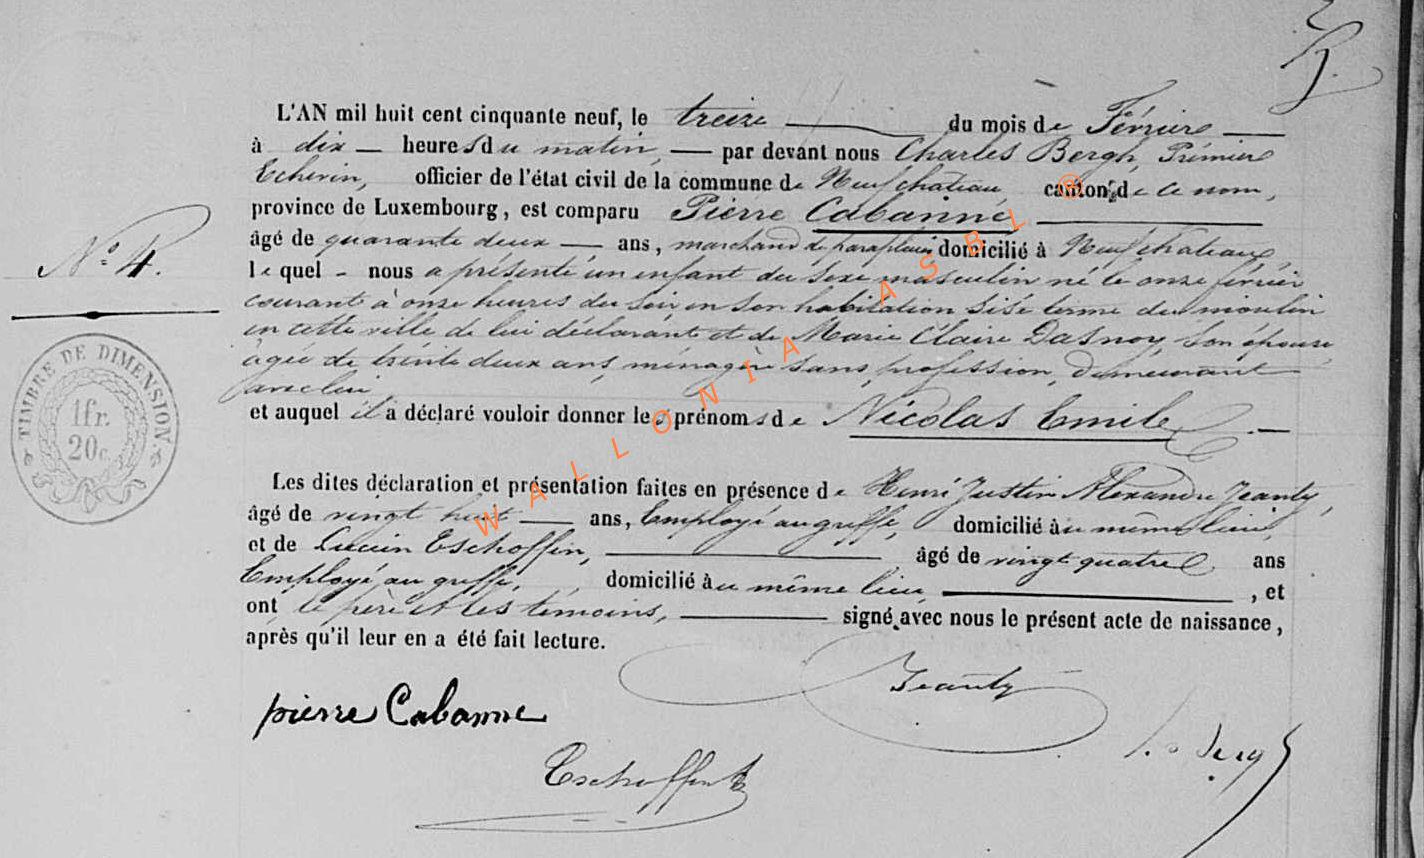 L'AN mil huit cent cinquante neuf, le treize du mois de Février
à dix heures du matin, par devant nous Charles Bergh, Prémier
Echevin, officier de l'état civil de la commune de Neufchateau canton de ce nom,
province de Luxembourg, est comparu Pierre Cabanne
âgé de quarante deux ans, marchand de parapluies domicilié à Neufchateau,
N.° 4.
lequel nous a présenté un enfant du sexe masculin né le onze février
courant à onze heures du soir en son habitation sise terme du moulin
en cette ville de lui déclarant et de Marie Claire Dasnoy, son épouse,
âgée de trente deux ans, ménagère sans profession, demeurant
avec lui
et auquel il a déclaré vouloir donner les prénoms de Nicolas Emile
TIMBRE DE DIMENSION
1fr.
20c.
Les dites déclaration et présentation faites en présence de Henri Justin Alexandre Jeanty,
âgé de vingt huit ans, Employé au greffe, domicilié au même lieu,
et de Lucien Eschoffin, âgé de vingt quatre ans
Employé au greffe, domicilié au même lieu, , et
ont le père et les témoins, signé avec nous le présent acte de naissance,
après qu'il leur en a été fait lecture.
Jeanty
pierre Cabanne
WALLONIA ASBL ®